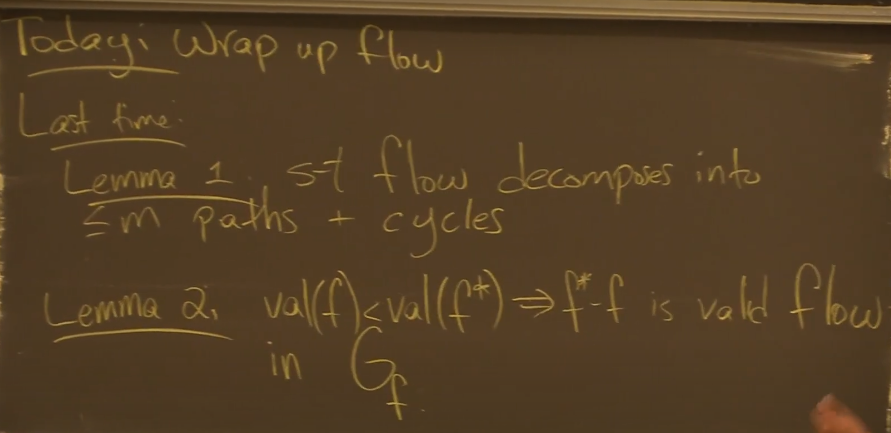 Today: Wrap up flow
Last time:
Lemma 1. s-t flow decomposes into
≤m paths + cycles
Lemma 2. val(f)<val(f*) ⇒ f*-f is valid flow
in G_f.